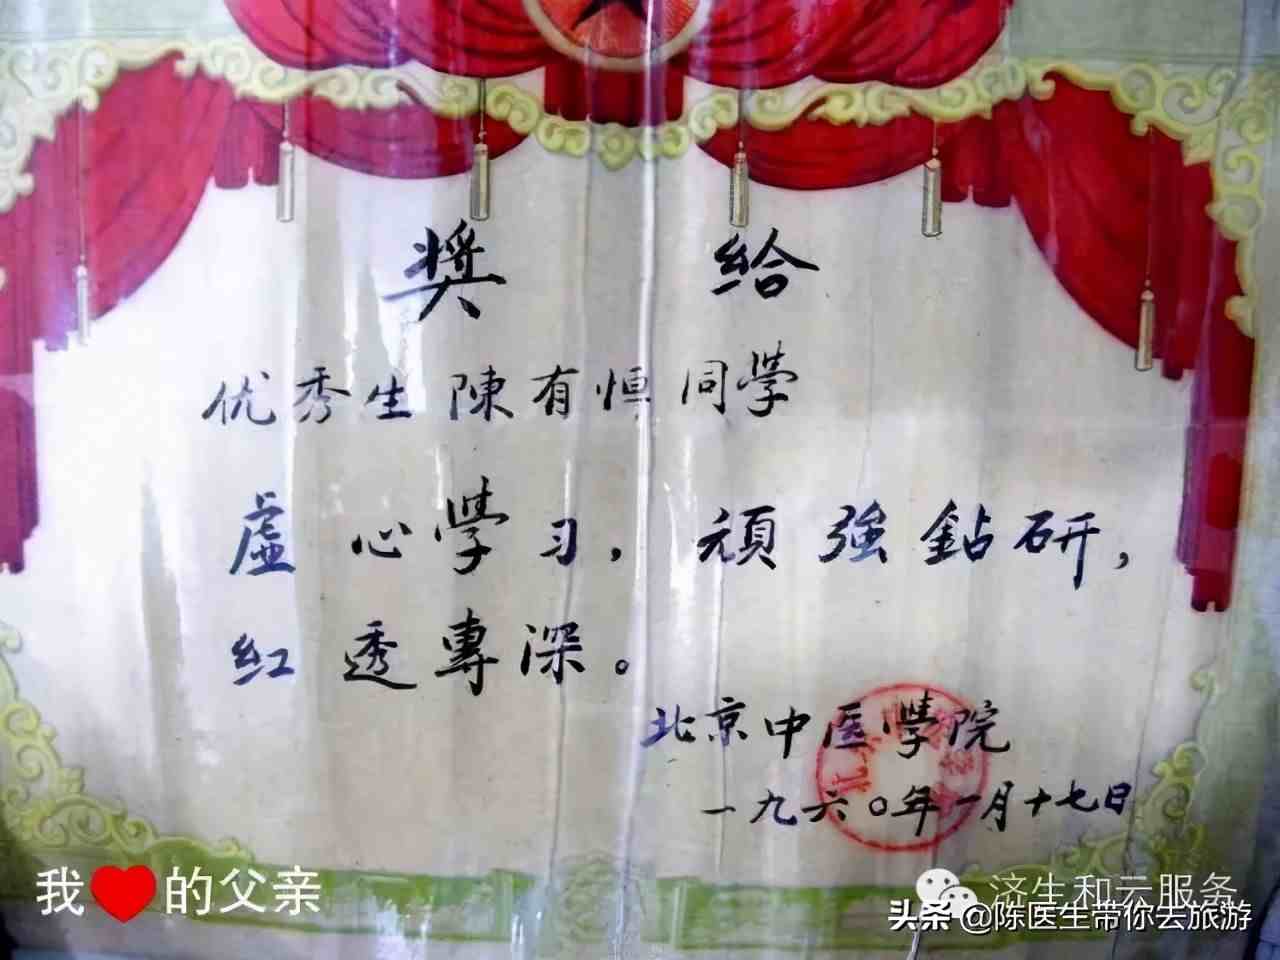 奨給
优秀生陳有恒同學
虛心學习，頑強鉆研，
紅透專深。
北京中医學院
一九六〇年一月十七日
我❤的父亲
济生和云服务
头条@陈医生带你去旅游